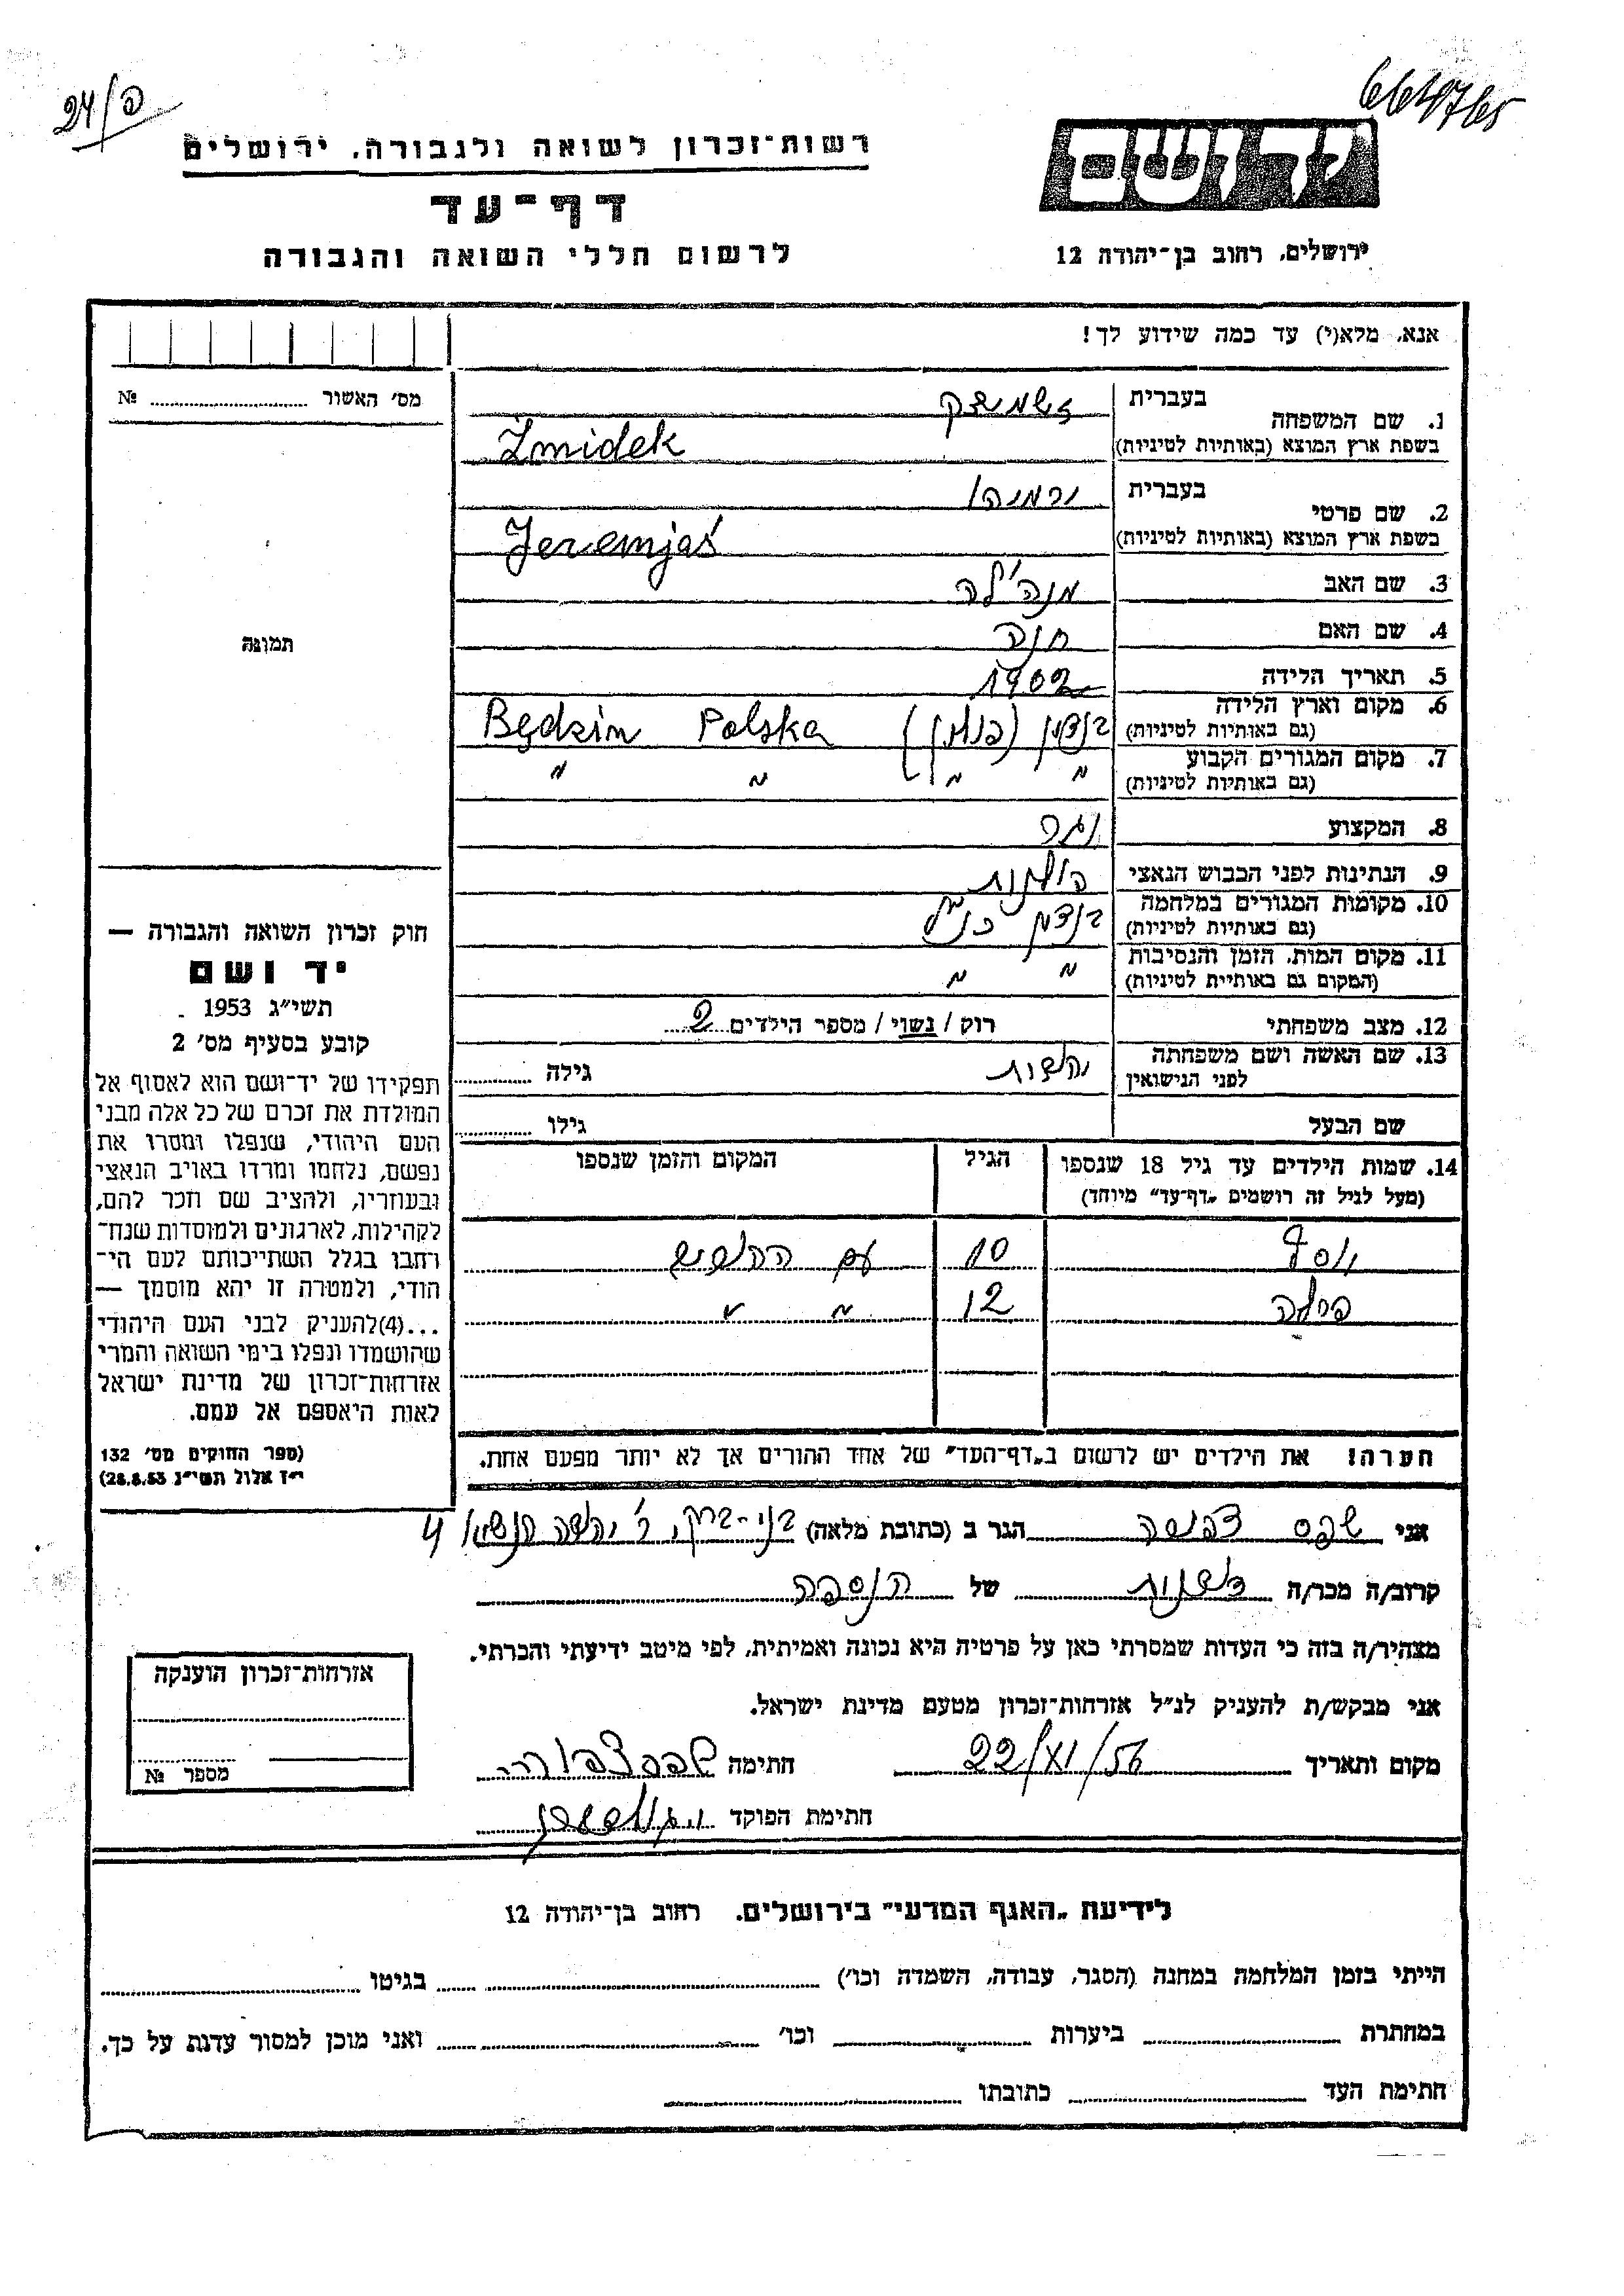 24/פ
רשות־זכרון לשואה ולגבורה, ירושלים
דף־עד
לרשום חללי השואה והגבורה
ירושלים, רחוב בן־יהודה 12
אנא, מלא(י) עד כמה שידוע לך!
מס' האשור № ........
תמונה
1. שם המשפחה בעברית
בשפת ארץ המוצא (באותיות לטיניות) Żmidek
2. שם פרטי בעברית ירמיהו
בשפת ארץ המוצא (באותיות לטיניות) Jeremjaś
3. שם האב
4. שם האם חנה
5. תאריך הלידה 1902
6. מקום וארץ הלידה בנדין (פולין) Będzin Polska
(גם באותיות לטיניות)
7. מקום המגורים הקבוע " " " "
(גם באותיות לטיניות)
8. המקצוע
9. הנתינות לפני הכבוש הנאצי פולנית
10. מקומות המגורים במלחמה בנדין כנ"ל
(גם באותיות לטיניות)
11. מקום המות, הזמן והנסיבות " "
(המקום גם באותיית לטיניות)
12. מצב משפחתי רוק / נשוי / מספר הילדים 2
13. שם האשה ושם משפחתה יהודית גילה ........
לפני הנישואין
שם הבעל גילו ........
14. שמות הילדים עד גיל 18 שנספו הגיל המקום והזמן שנספו
(מעל לגיל זה רושמים „דף־עד" מיוחד)
יוסף 10 עם
12 " "
הערה! את הילדים יש לרשום ב„דף־העד" של אחד ההורים אך לא יותר מפעם אחת.
חוק זכרון השואה והגבורה —
יד ושם
תשי"ג 1953
קובע בסעיף מס' 2
תפקידו של יד־ושם הוא לאסוף אל
המולדת את זכרם של כל אלה מבני
העם היהודי, שנפלו ומסרו את
נפשם, נלחמו ומרדו באויב הנאצי
ובעוזריו, ולהציב שם וזכר להם,
לקהילות, לארגונים ולמוסדות שנח־
רבו בגלל השתייכותם לעם הי־
הודי, ולמטרה זו יהא מוסמך —
...(4)להעניק לבני העם היהודי
שהושמדו ונפלו בימי השואה והמרי
אזרחות־זכרון של מדינת ישראל
לאות היאספם אל עמם.
(ספר החוקים מס' 132
י"ז אלול תשי"ג 28.8.53)
אני שפס צפורה הגר ב (כתובת מלאה) בני-ברק, ר' יהודה הנשיא 4
קרוב/ה מכר/ה של הנספה
מצהיר/ה בזה כי העדות שמסרתי כאן על פרטיה היא נכונה ואמיתית, לפי מיטב ידיעתי והכרתי.
אני מבקש/ת להעניק לנ"ל אזרחות־זכרון מטעם מדינת ישראל.
מקום ותאריך 22/XI/56 חתימה שפס צפורה
חתימת הפוקד
אזרחות־זכרון הוענקה
מספר №
לידיעת „האגף המדעי" בירושלים, רחוב בן־יהודה 12
הייתי בזמן המלחמה במחנה (הסגר, עבודה, השמדה וכו') ........ בגיטו ........
במחתרת ........ ביערות ........ וכו' ........ ואני מוכן למסור עדות על כך.
חתימת העד ........ כתובתו ........